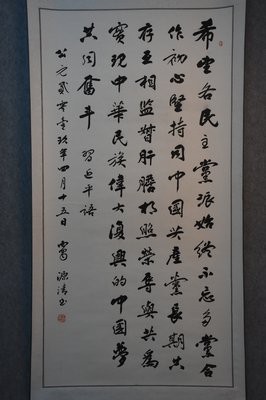 希望各民主黨派始終不忘多黨合
作初心堅持同中國共產黨長期共
存互相監督肝膽相照榮辱與共為
實現中華民族偉大復興的中國夢
共同奮斗 習近平語
公元貳零壹玖年四月十五日 源清书